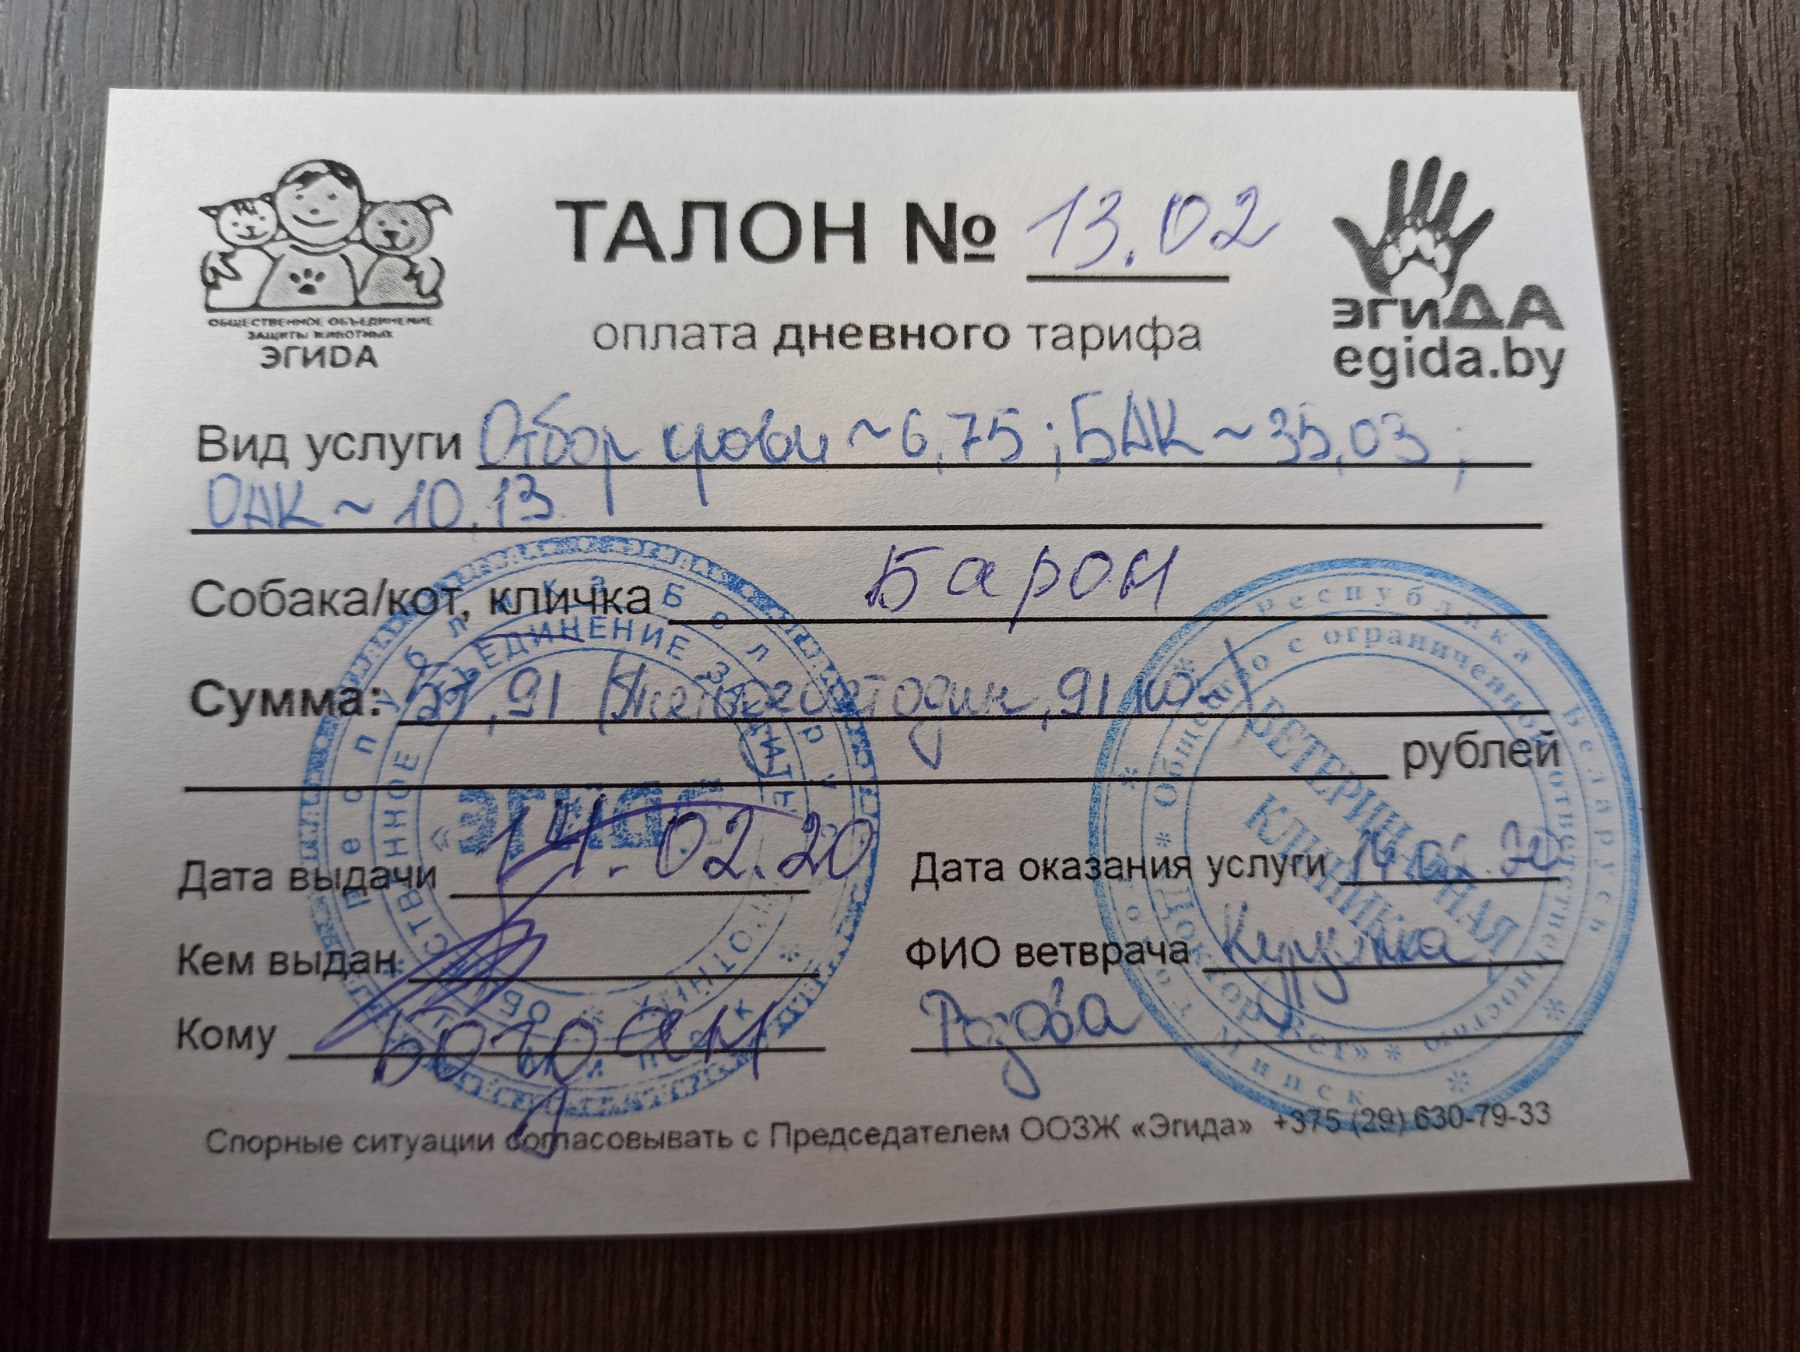 ОБЩЕСТВЕННОЕ ОБЪЕДИНЕНИЕ
ЗАЩИТЫ ЖИВОТНЫХ
ЭГИDА
ТАЛОН № 13.02
оплата дневного тарифа
эгиДА
egida.by
Вид услуги Отбор крови ~ 6,75 ; БАК ~ 35,03 ;
ОАК ~ 10,13
Собака/кот, кличка Барон
Сумма: 51,91 (Пятьдесят один, 91 )
рублей
Дата выдачи 14.02.20
Дата оказания услуги 14.02.20
Кем выдан
ФИО ветврача
Кому
Розова
Спорные ситуации согласовывать с Председателем ООЗЖ «Эгида» +375 (29) 630-79-33
Республика Беларусь
ОБЩЕСТВЕННОЕ ОБЪЕДИНЕНИЕ ЗАЩИТЫ ЖИВОТНЫХ
ЭГИДА
Республика Беларусь
Общество с ограниченной ответственностью
ВЕТЕРИНАРНАЯ
КЛИНИКА
город Минск